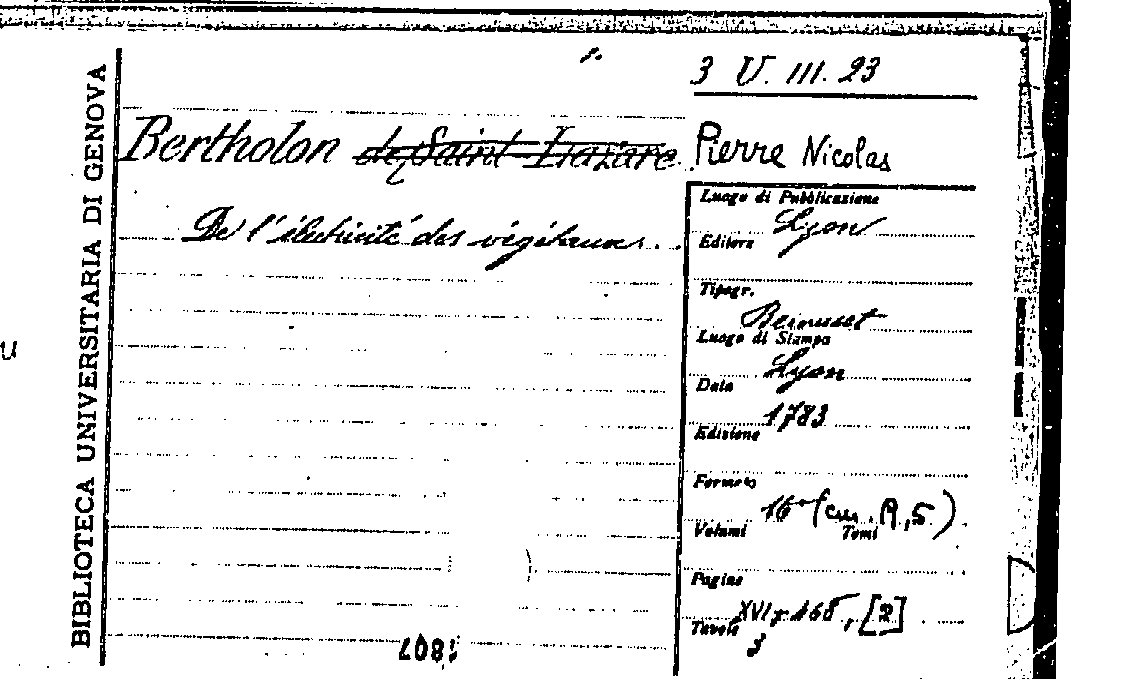 3 U. III. 23
BIBLIOTECA UNIVERSITARIA DI GENOVA
Bertholon de Saint-Lazare Pierre Nicolas
De l'électricité des végétaux.
Luogo di Pubblicazione
Lyon
Editore
Tipogr.
Bernuset
Luogo di Stampa
Lyon
Data
1783
Edizione
Formato
16° (cm. 19,5)
Volumi Tomi
Pagine
XVI, 468, [2]
Tavole
3